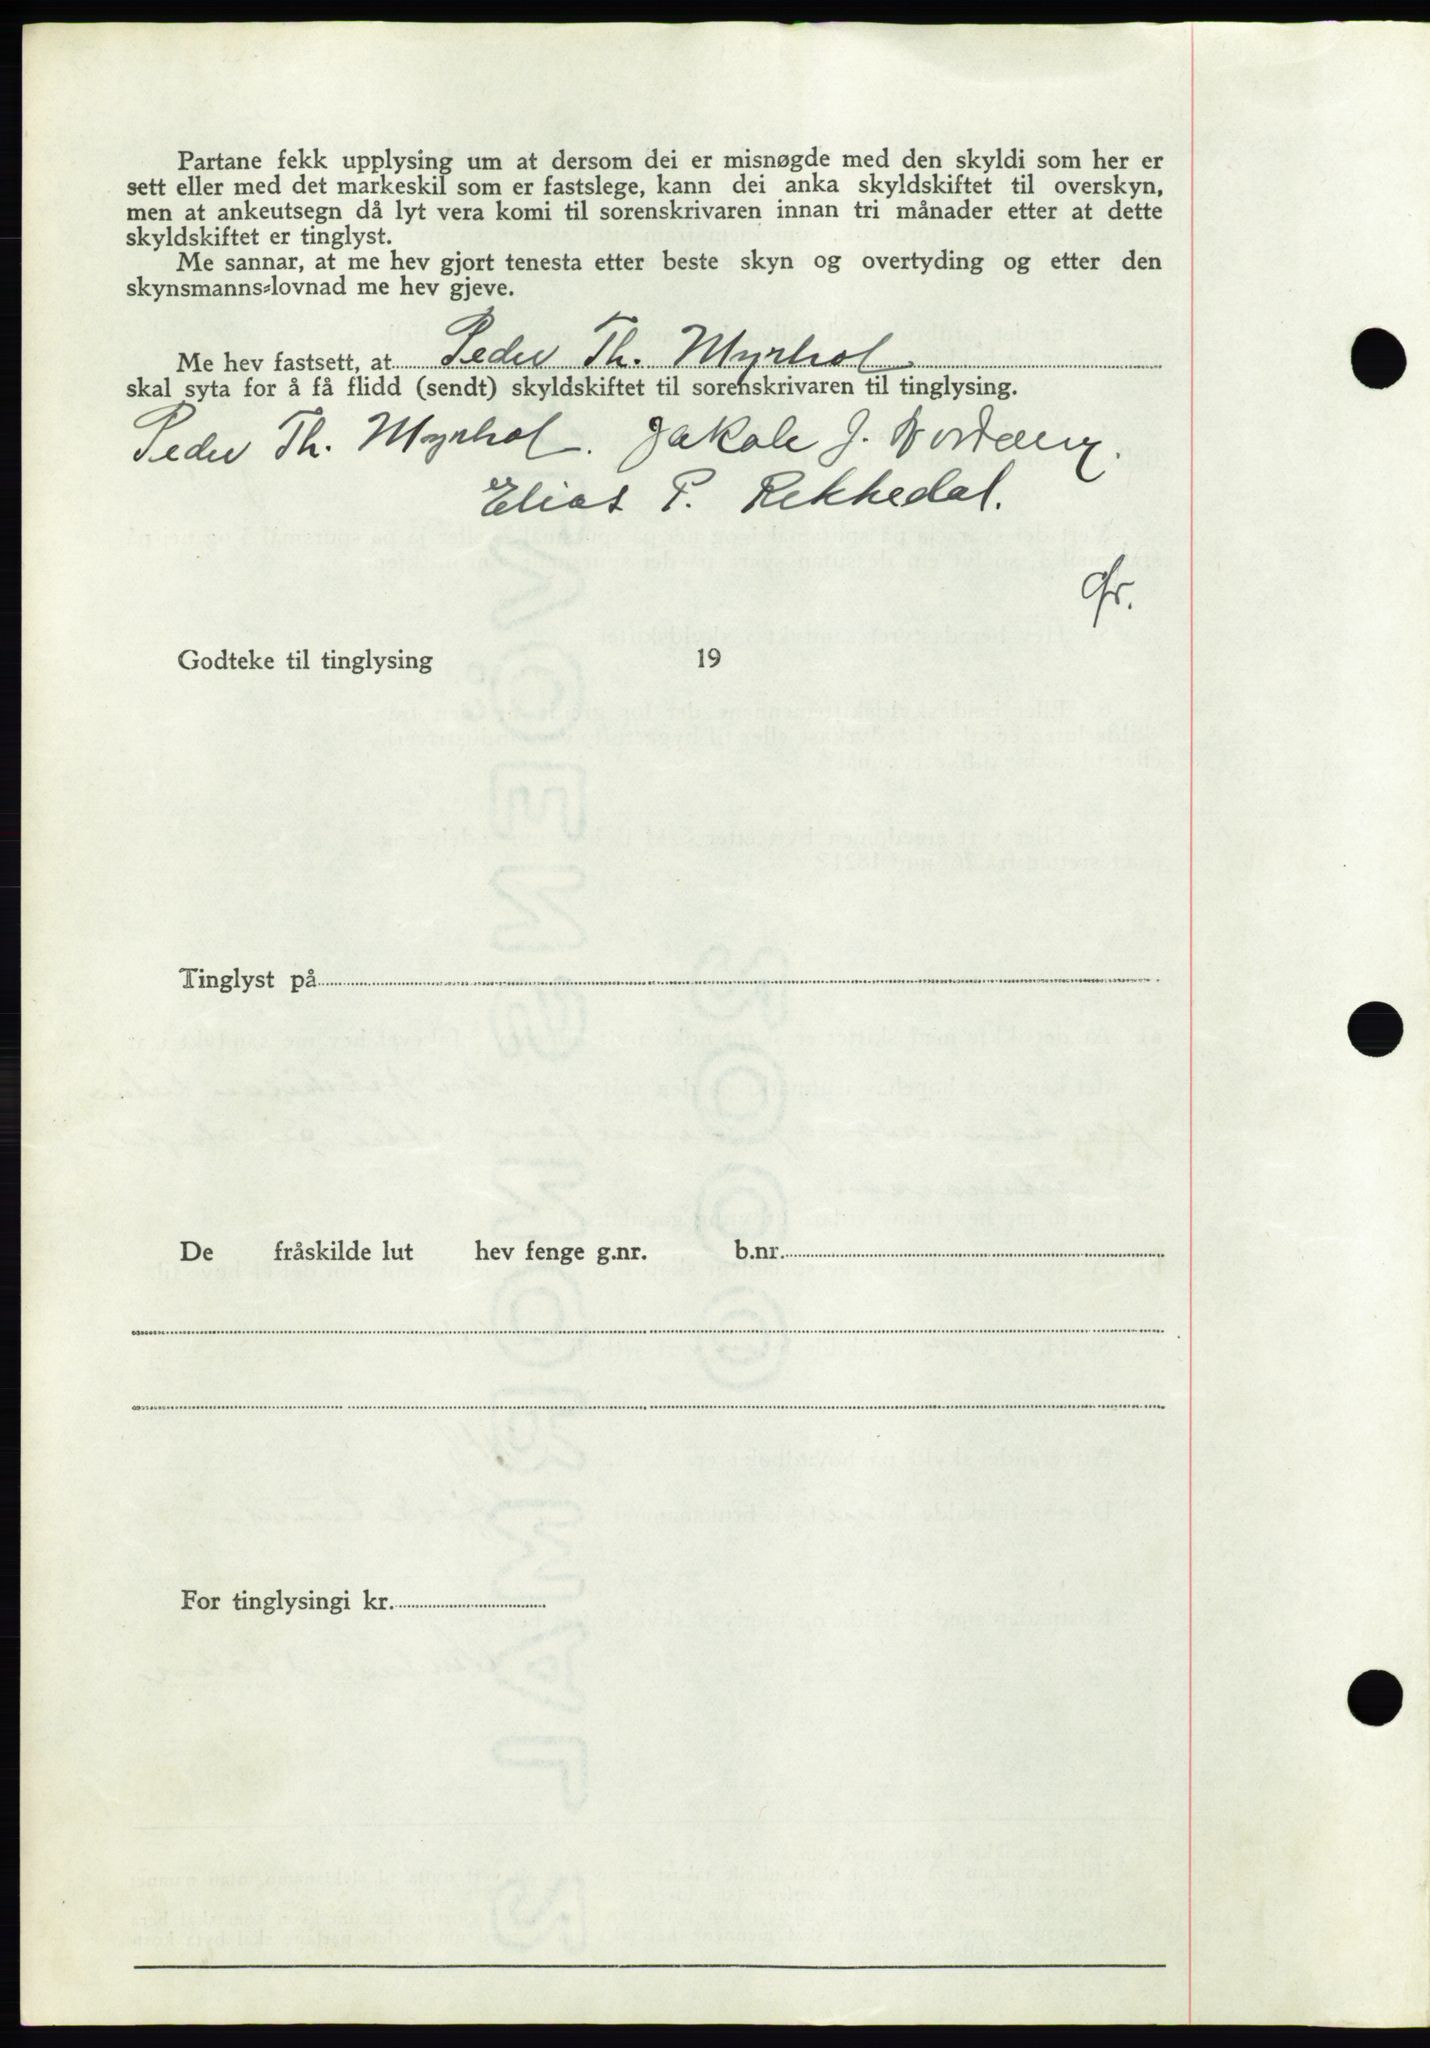 Partane fekk upplysing um at dersom dei er misnøgde med den skyldi som her er
sett eller med det markeskil som er fastslege, kann dei anka skyldskiftet til overskyn,
men at ankeutsegn då lyt vera komi til sorenskrivaren innan tri månader etter at dette
skyldskiftet er tinglyst.
Me sannar, at me hev gjort tenesta etter beste skyn og overtyding og etter den
skynsmanns-lovnad me hev gjeve.
Me hev fastsett, at Peder Th. Myrhol
skal syta for å få flidd (sendt) skyldskiftet til sorenskrivaren til tinglysing.
Peder Th. Myrhol. Jakob J.
Elias P. Rekkedal.
Godteke til tinglysing 19
Tinglyst på
De fråskilde lut hev fenge g.nr. b.nr.
For tinglysingi kr.